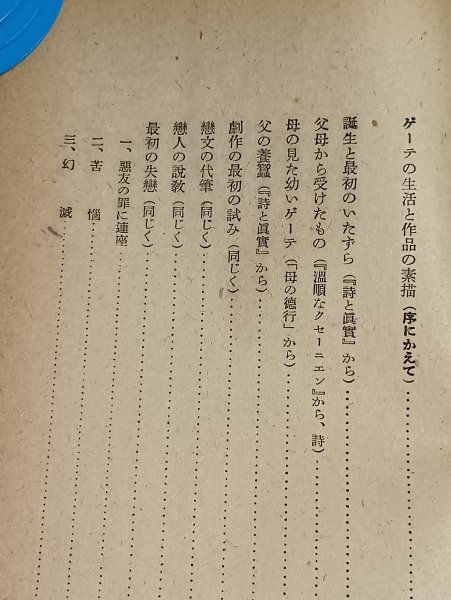 ゲーテの生活と作品の素描(序にかえて)
誕生と最初のいたずら(『詩と眞實』から)
父母から受けたもの(『溫順なクセーニエン』から、詩)
母の見た幼いゲーテ(「母の德行」から)
父の養蠶(『詩と眞實』から)
劇作の最初の試み(同じく)
戀文の代筆(同じく)
戀人の說敎(同じく)
最初の失戀(同じく)
一、惡友の罪に連座
二、苦惱
三、幻滅